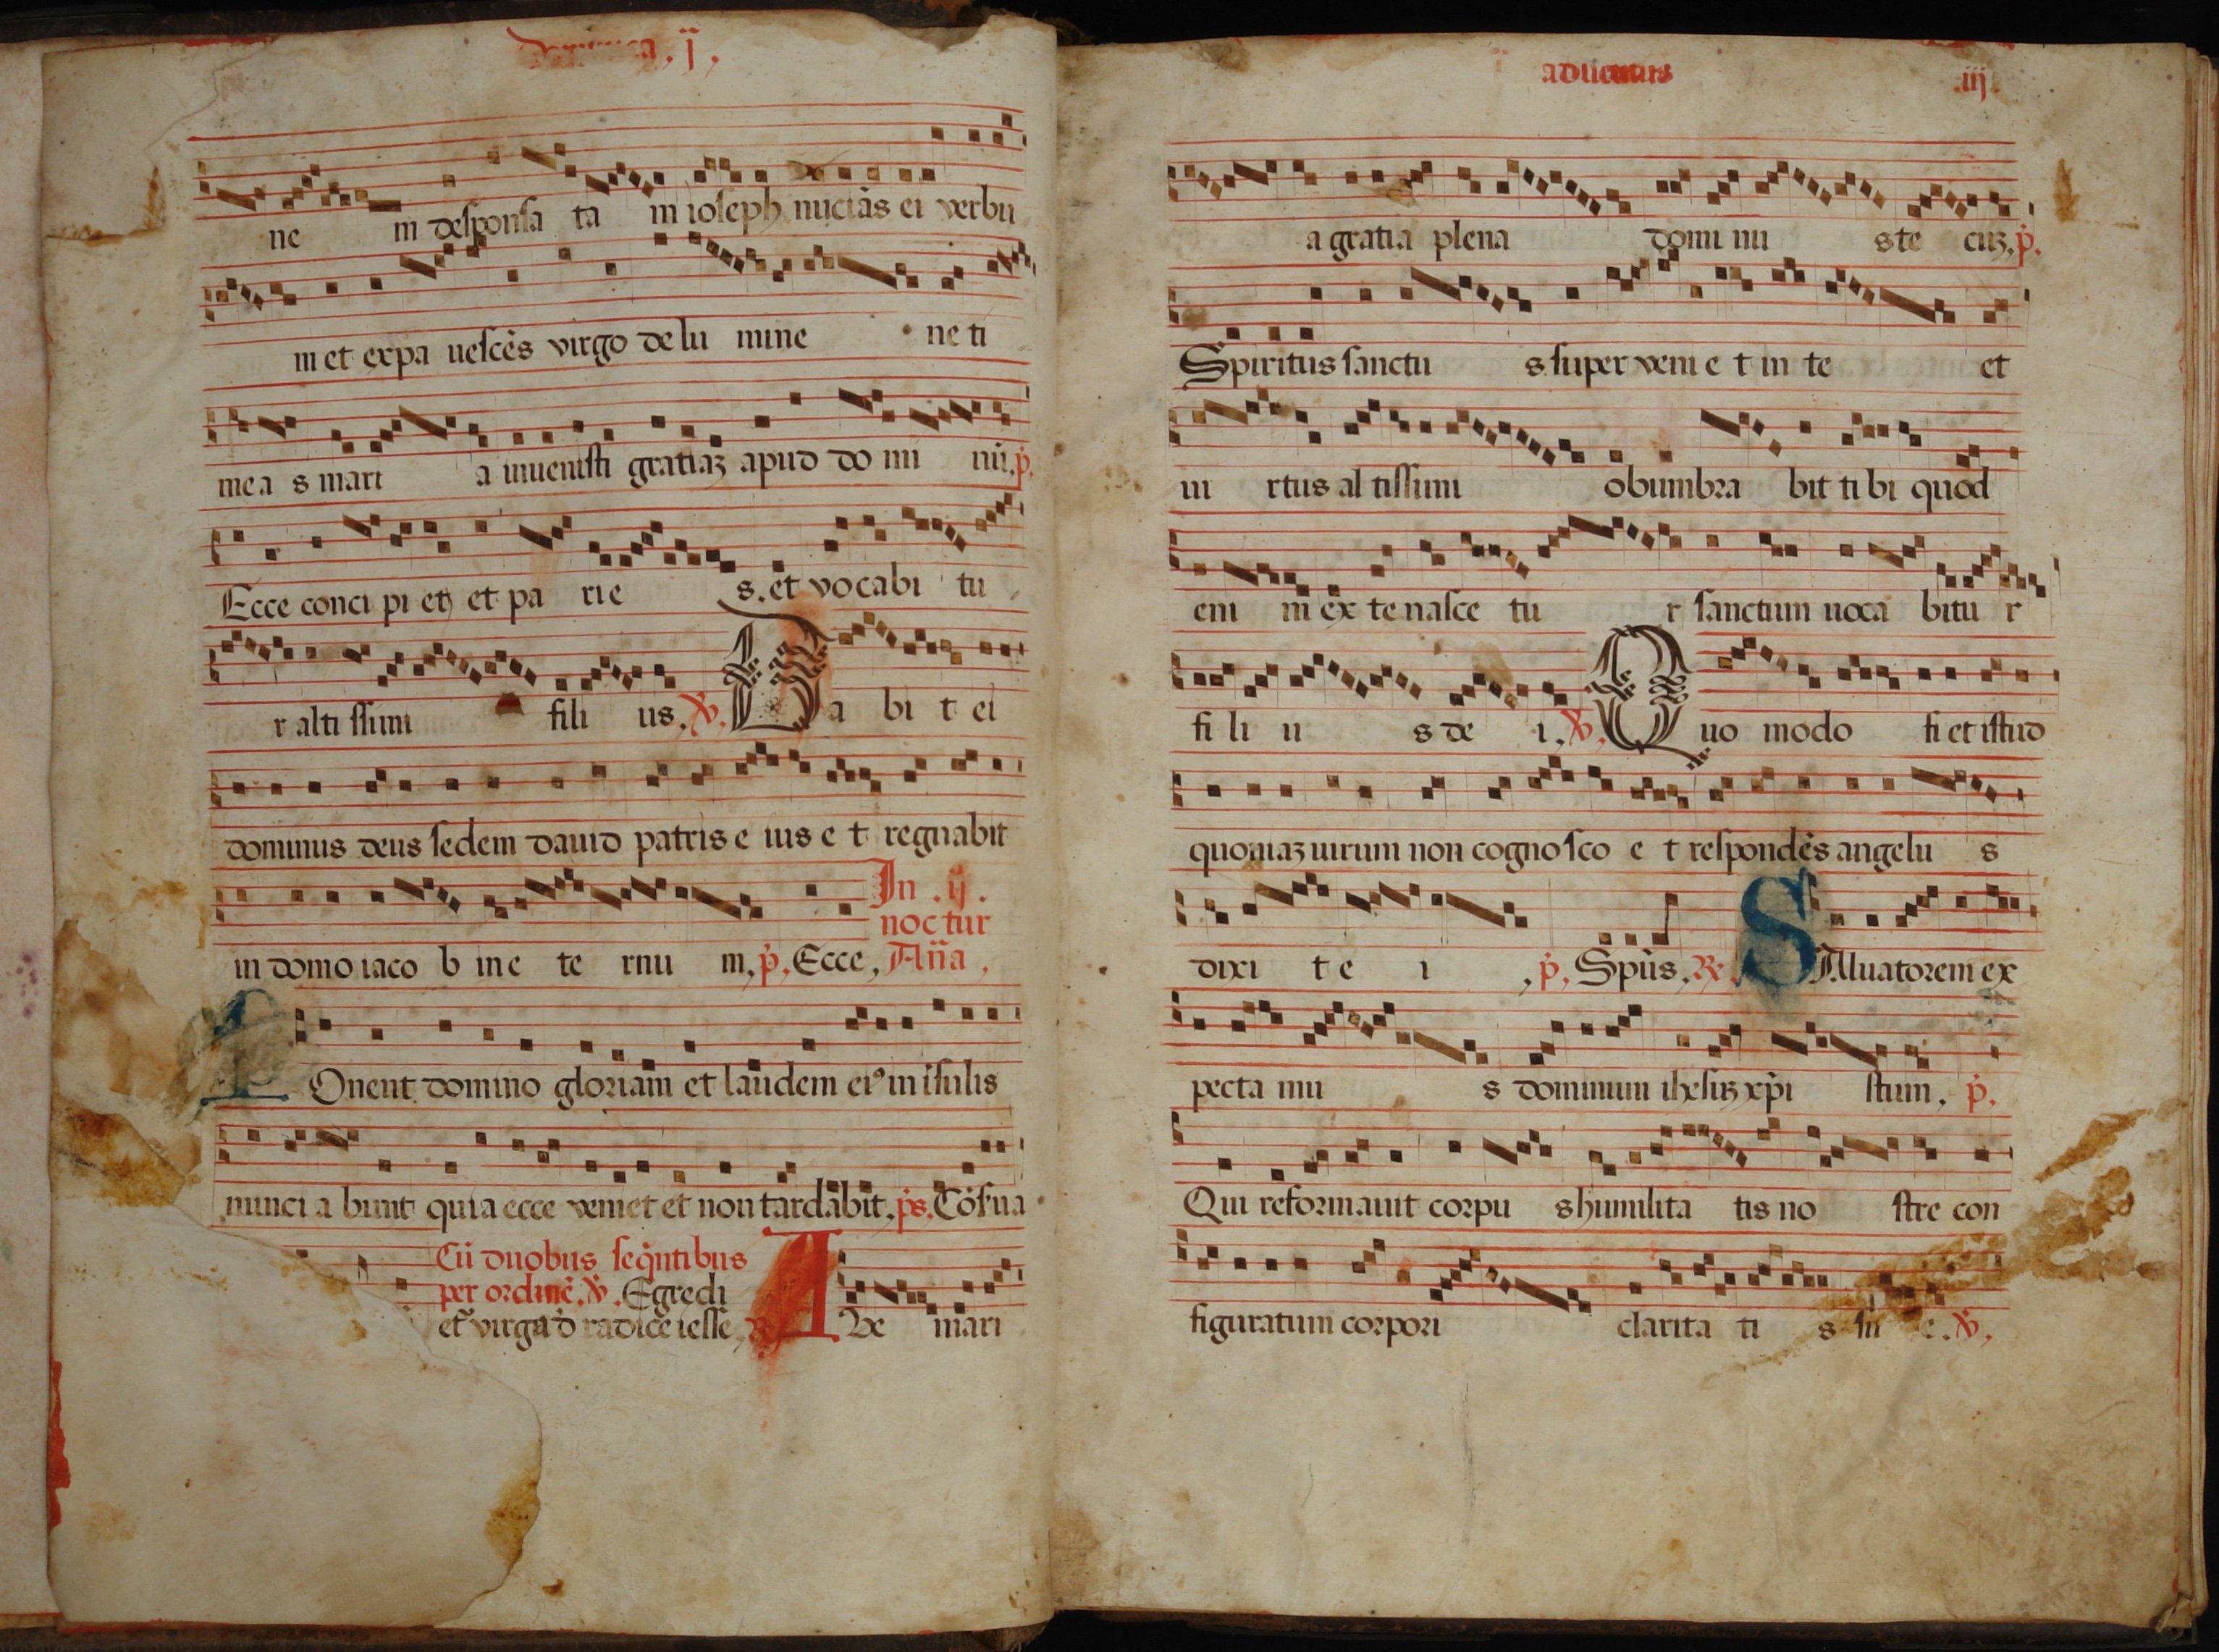 .ij.
ne m desponsa ta m ioseph nuciās ei verbū
m et expa uescēs virgo de lu mine ne ti
mea s mari a inuenisti gratiaz apud do mi nū. p̄.
Ecce conci pi et et pa rie s. et vocabi tu
r alti ssimi fili us. V. Da bi t ei
dominus deus sedem dauid patris e ius e t regnabit
in domo iaco b in e te rnu m, p̄, Ecce, In .ij.
noctur
An̄a,
POnent domino gloriam et laudem ei⁹ in isulis
nunci a bunt quia ecce veniet et non tardabit. p̄s. Cōf'ua
Cū duobus seq̄ntibus
per ordinē. V. Egredi
et̄ virga d̄ radice iesse R. AVe mari
aduentus .iij.
a gratia plena domi nu s te cuz. p̄.
Spiritus sanctu s. super veni e t in te et
ui rtus al tissimi obumbra bit ti bi quod
eni m ex te nasce tu r sanctum uoca bitu r
fi li u s de i. V. Quo modo fi et istud
quoniaz uirum non cogno sco e t respondēs angelu s
dixi t e i , p̄, Sp̄us. R. SAluatorem ex
pecta mu s dominum ihesuz xp̄i stum, p̄.
Qui reformauit corpu s humilita tis no stre con
figuratum corpori clarita ti s su e. V.